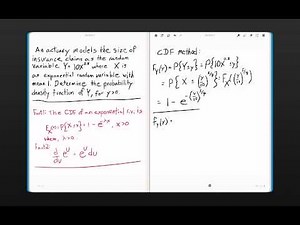 An actuary models the size of
insurance claims as the random
variable Y = 10X^0.8 where X is
an exponential random variable with
mean 1. Determine the probability
density function of Y, for y>0.
Fact 1: The CDF of an exponential r.v. is
F_X(x) = P{X ≤ x} = 1 - e^-λx, x>0
where, λ>0.
Fact 2:
d/dv e^u = e^u du
CDF method:
F_Y(y) = P{Y ≤ y} = P{10X^0.8 ≤ y}
= P{X ≤ (y/10)^5/4} = F_X((y/10)^5/4)
= 1 - e^-(y/10)^5/4
f_Y(y) =